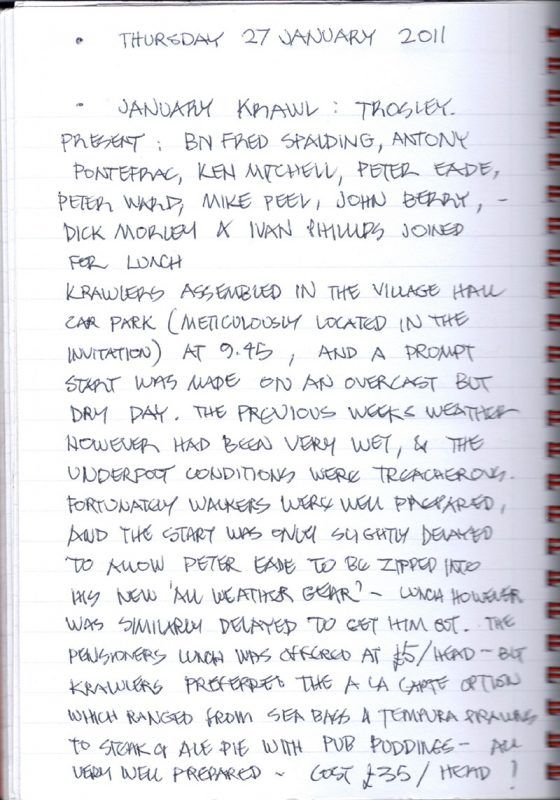 • THURSDAY 27 JANUARY 2011
• JANUARY KRAWL : TROSLEY.
PRESENT : BN FRED SPALDING, ANTONY
PONTEFRAC, KEN MITCHELL, PETER EADE,
PETER WARD, MIKE PEEL, JOHN BERRY, -
DICK MORLEY & IVAN PHILLIPS JOINED
FOR LUNCH
KRAWLERS ASSEMBLED IN THE VILLAGE HALL
CAR PARK (METICULOUSLY LOCATED IN THE
INVITATION) AT 9.45, AND A PROMPT
START WAS MADE ON AN OVERCAST BUT
DRY DAY. THE PREVIOUS WEEKS WEATHER
HOWEVER HAD BEEN VERY WET, & THE
UNDERFOOT CONDITIONS WERE TREACHEROUS.
FORTUNATELY WALKERS WERE WELL PREPARED,
AND THE START WAS ONLY SLIGHTLY DELAYED
TO ALLOW PETER EADE TO BE ZIPPED INTO
HIS NEW 'ALL WEATHER GEAR' - LUNCH HOWEVER
WAS SIMILARLY DELAYED TO GET HIM OUT. THE
PENSIONERS LUNCH WAS OFFERED AT £5/HEAD - BUT
KRAWLERS PREFERRED THE A LA CARTE OPTION
WHICH RANGED FROM SEA BASS & TEMPURA PRAWNS
TO STEAK & ALE PIE WITH PUB PUDDINGS - ALL
VERY WELL PREPARED - COST £35/HEAD !